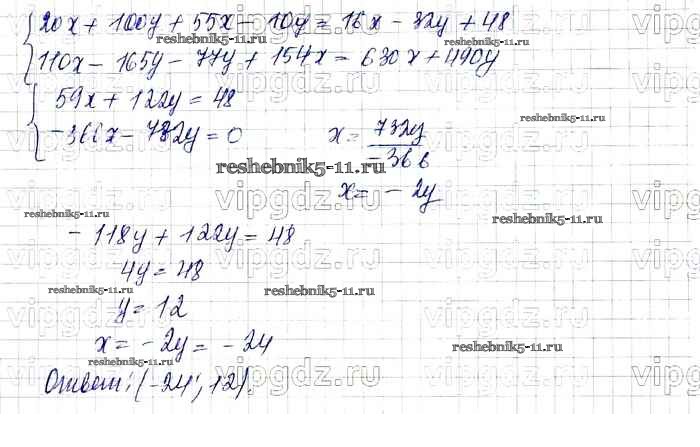 20x + 100y + 55x - 10y = 16x - 32y + 48
110x - 165y - 77y + 154x = 630x + 490y
59x + 122y = 48
-366x - 732y = 0
x = 732y / -366
x = -2y
-118y + 122y = 48
4y = 48
y = 12
x = -2y = -24
Ответ: (-24; 12).
reshebnik5-11.ru
reshebnik5-11.ru
reshebnik5-11.ru
reshebnik5-11.ru
reshebnik5-11.ru
reshebnik5-11.ru
reshebnik5-11.ru
reshebnik5-11.ru
reshebnik5-11.ru
vipgdz.ru
vipgdz.ru
vipgdz.ru
vipgdz.ru